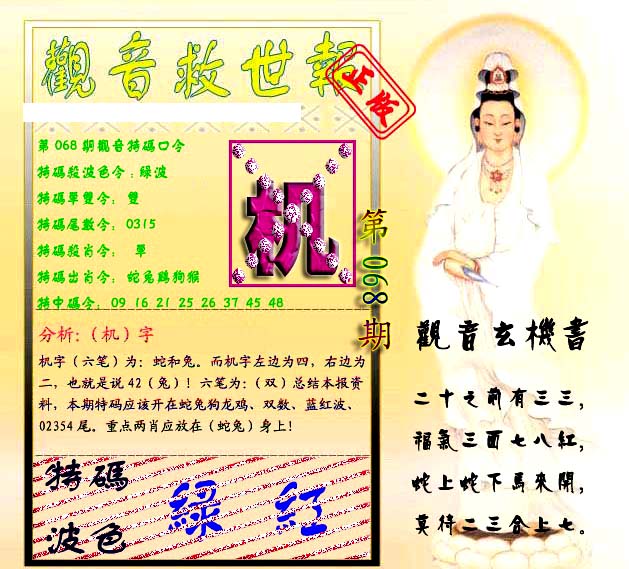 觀音救世報
正版
第068期觀音特碼口令
特碼殺波色令：綠波
特碼單雙令： 雙
特碼尾數令： 0315
特碼殺肖令： 單
特碼出肖令： 蛇兔鷄狗猴
特中碼令： 09 16 21 25 26 37 45 48
机
第068期
分析：（机）字
机字（六笔）为：蛇和兔。而机字左边为四，右边为
二，也就是说42（兔）！六笔为：（双）总结本报资
料，本期特码应该开在蛇兔狗龙鸡、双数、蓝红波、
02354尾。重点两肖应放在（蛇兔）身上！
特碼
波色
綠 紅
觀音玄機書
二十之前有三三，
福氣三面七八紅，
蛇上蛇下馬來開，
莫待二三合上七。